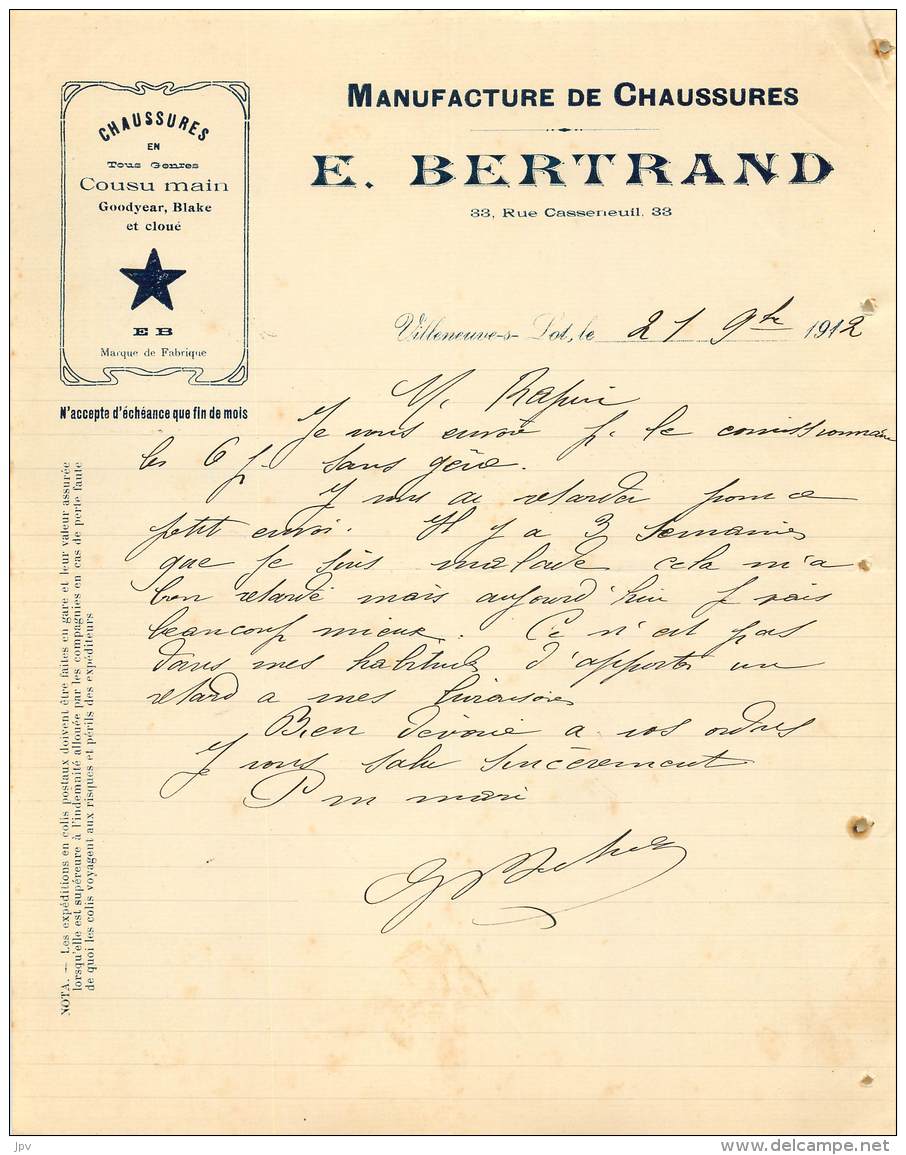 MANUFACTURE DE CHAUSSURES
E. BERTRAND
33, Rue Casseneuil, 33
CHAUSSURES
EN
Tous Genres
Cousu main
Goodyear, Blake
et cloué
EB
Marque de Fabrique
N'accepte d'échéance que fin de mois
Villeneuve-s-Lot, le 21 9bre 1912
M.
Je vous envoie p. le comissionnaire
les 6 p. sans gêne.
retarder pour ce
petit envoi. Il y a 3 semaines
que je suis malade cela m'a
bien retardé mais aujourd'hui je vais
beaucoup mieux. Ce n'est pas
dans mes habitudes d'apporter un
retard a mes livraisons
Bien dévoué a vos ordres
Je vous salue sincèrement
P mon mari
NOTA. — Les expéditions en colis postaux doivent être faites en gare et leur valeur assurée
lorsqu'elle est supérieure à l'indemnité allouée par les compagnies en cas de perte faute
de quoi les colis voyagent aux risques et périls des expéditeurs
jpv
www.delcampe.net